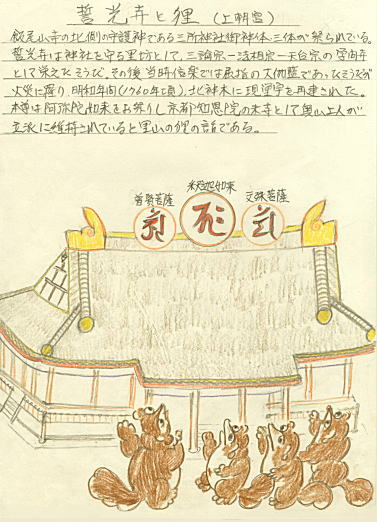 誓光寺と狸 (上朝宮)
飯尾山寺の北側の守護神である三所神社御神体三体が祭られている。
誓光寺は神社を守る里坊として、三論宗−法相宗−天台宗の学問寺
として栄えたそうだ。その後、当時信楽では屈指の大伽藍であったそうだが
火災に罹り、明和年間(1760年頃)、北神末に現堂宇を再建された。
本尊は阿弥陀如来をお祭りし京都知恩院の末寺として奥山上人が
立派に維持されていると里山の狸の話である。
普賢菩薩
釈迦如来
文殊菩薩